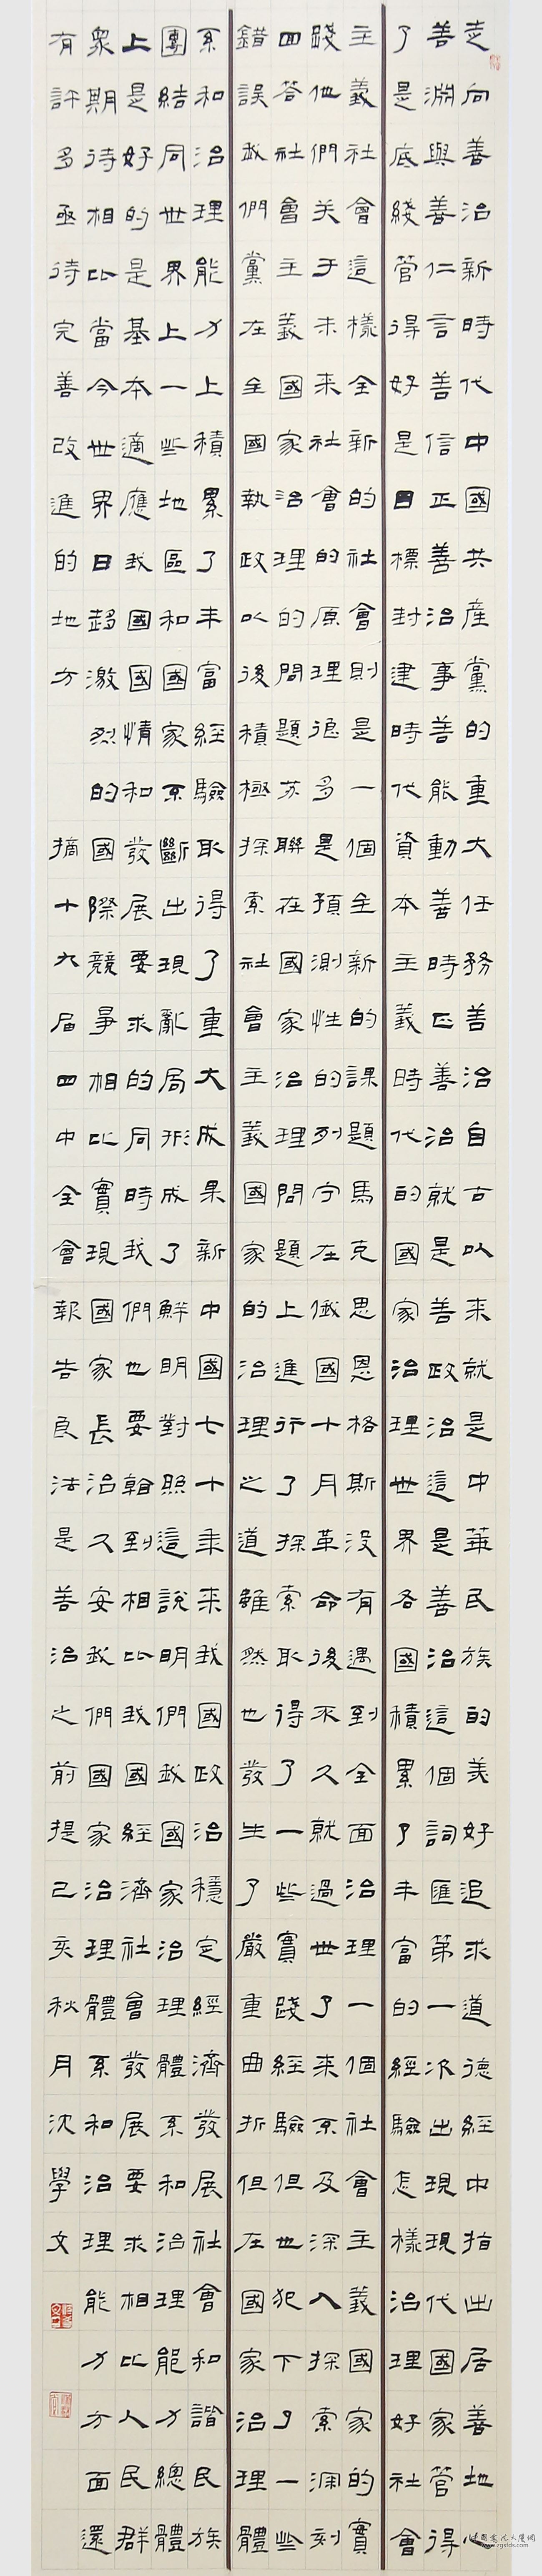 走向善治新時代中國共産黨的重大任務善治自古以来就是中華民族的美好追求道德經中指出居善地心
善淵與善仁言善信正善治事善能動善時正善治就是善政治這是善治這個詞匯第一次出現現代國家管得
了是底綫管得好是目標封建時代資本主義時代的國家治理世界各國積累了丰富的經驗怎樣治理好社會
主義社會這樣全新的社會則是一個全新的課題馬克思恩格斯没有遇到全面治理一個社會主義國家的實
踐他們关于未来社會的原理很多是預測性的列宁在俄國十月革命後不久就過世了来不及深入探索深刻
回答社會主義國家治理的問題苏聯在國家治理問題上進行了探索取得了一些實踐經驗但也犯下了一些
錯誤我們黨在全國執政以後積極探索社會主義國家的治理之道雖然也發生了嚴重曲折但在國家治理體
系和治理能力上積累了丰富經驗取得了重大成果新中國七十年来我國政治穩定經濟發展社會和諧民族
團結同世界上一些地區和國家不斷出現亂局形成了鮮明對照這說明們我國家治理體系和治理能力總體
上是好的是基本適應我國國情和發展要求的同時我們也要翰到相比我國經濟社會發展要求相比人民群
眾期待相比當今世界日趨激烈的國際競爭相比實現國家長治久安我們國家治理體系和治理能力方面還
有許多亟待完善改進的地方 摘十九屆四中全會報告良法是善治之前提己亥秋月沈學文